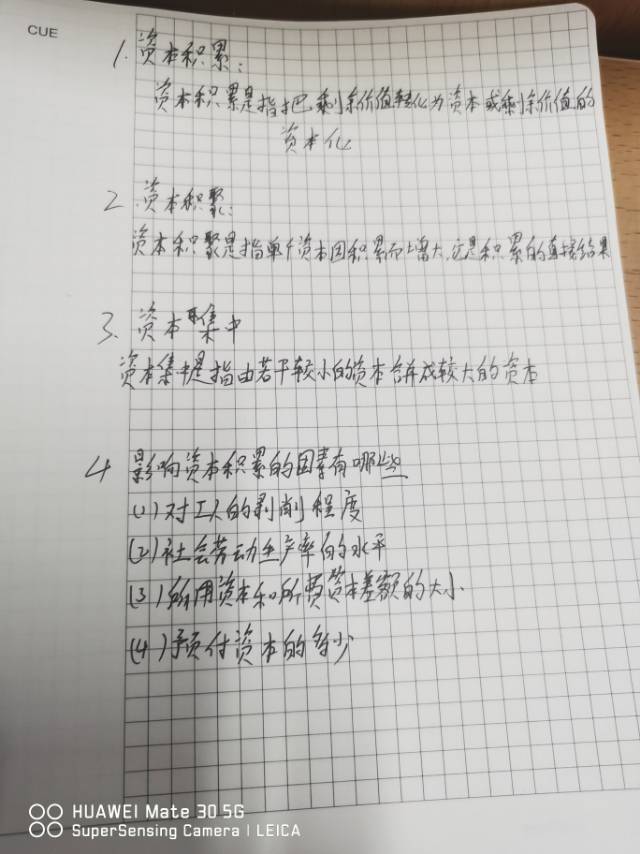 CUE
1.资本积累:
资本积累是指把剩余价值转化为资本或剩余价值的
资本化
2.资本积聚:
资本积聚是指单个资本因积累而增大,它是积累的直接结果
3、资本集中
资本集中是指由若干较小的资本合并成较大的资本
4 影响资本积累的因素有哪些
(1)对工人的剥削程度
(2)社会劳动生产率的水平
(3)所用资本和所费资本差额的大小
(4)预付资本的多少
HUAWEI Mate 30 5G
SuperSensing Camera | LEICA